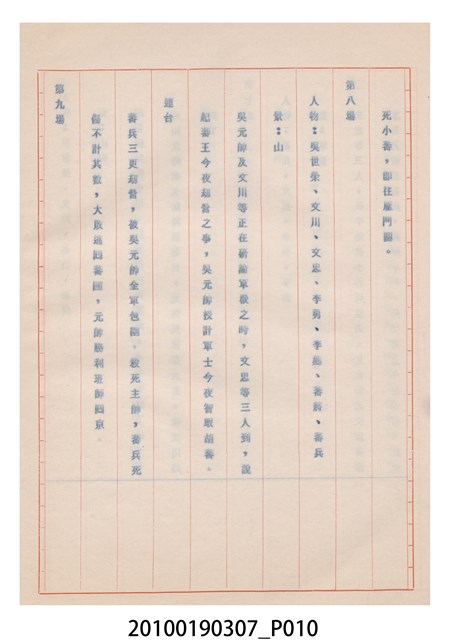 死小番，即往雁門關。
第八場
人物：吳世榮、文川、文忠、李勇、李、番將、番兵
景：山
吳元帥及文川等正在研論軍機之時，文忠等三人到，說
起番王今夜趙營之事，吳元帥授計軍士今夜智取胡番。
連台
番兵三更趙營，被吳元帥全軍包圍。殺死主帥，番兵死
傷不計其數，大敗逃回番國，元帥勝利班師回京。
第九場
20100190307_P010